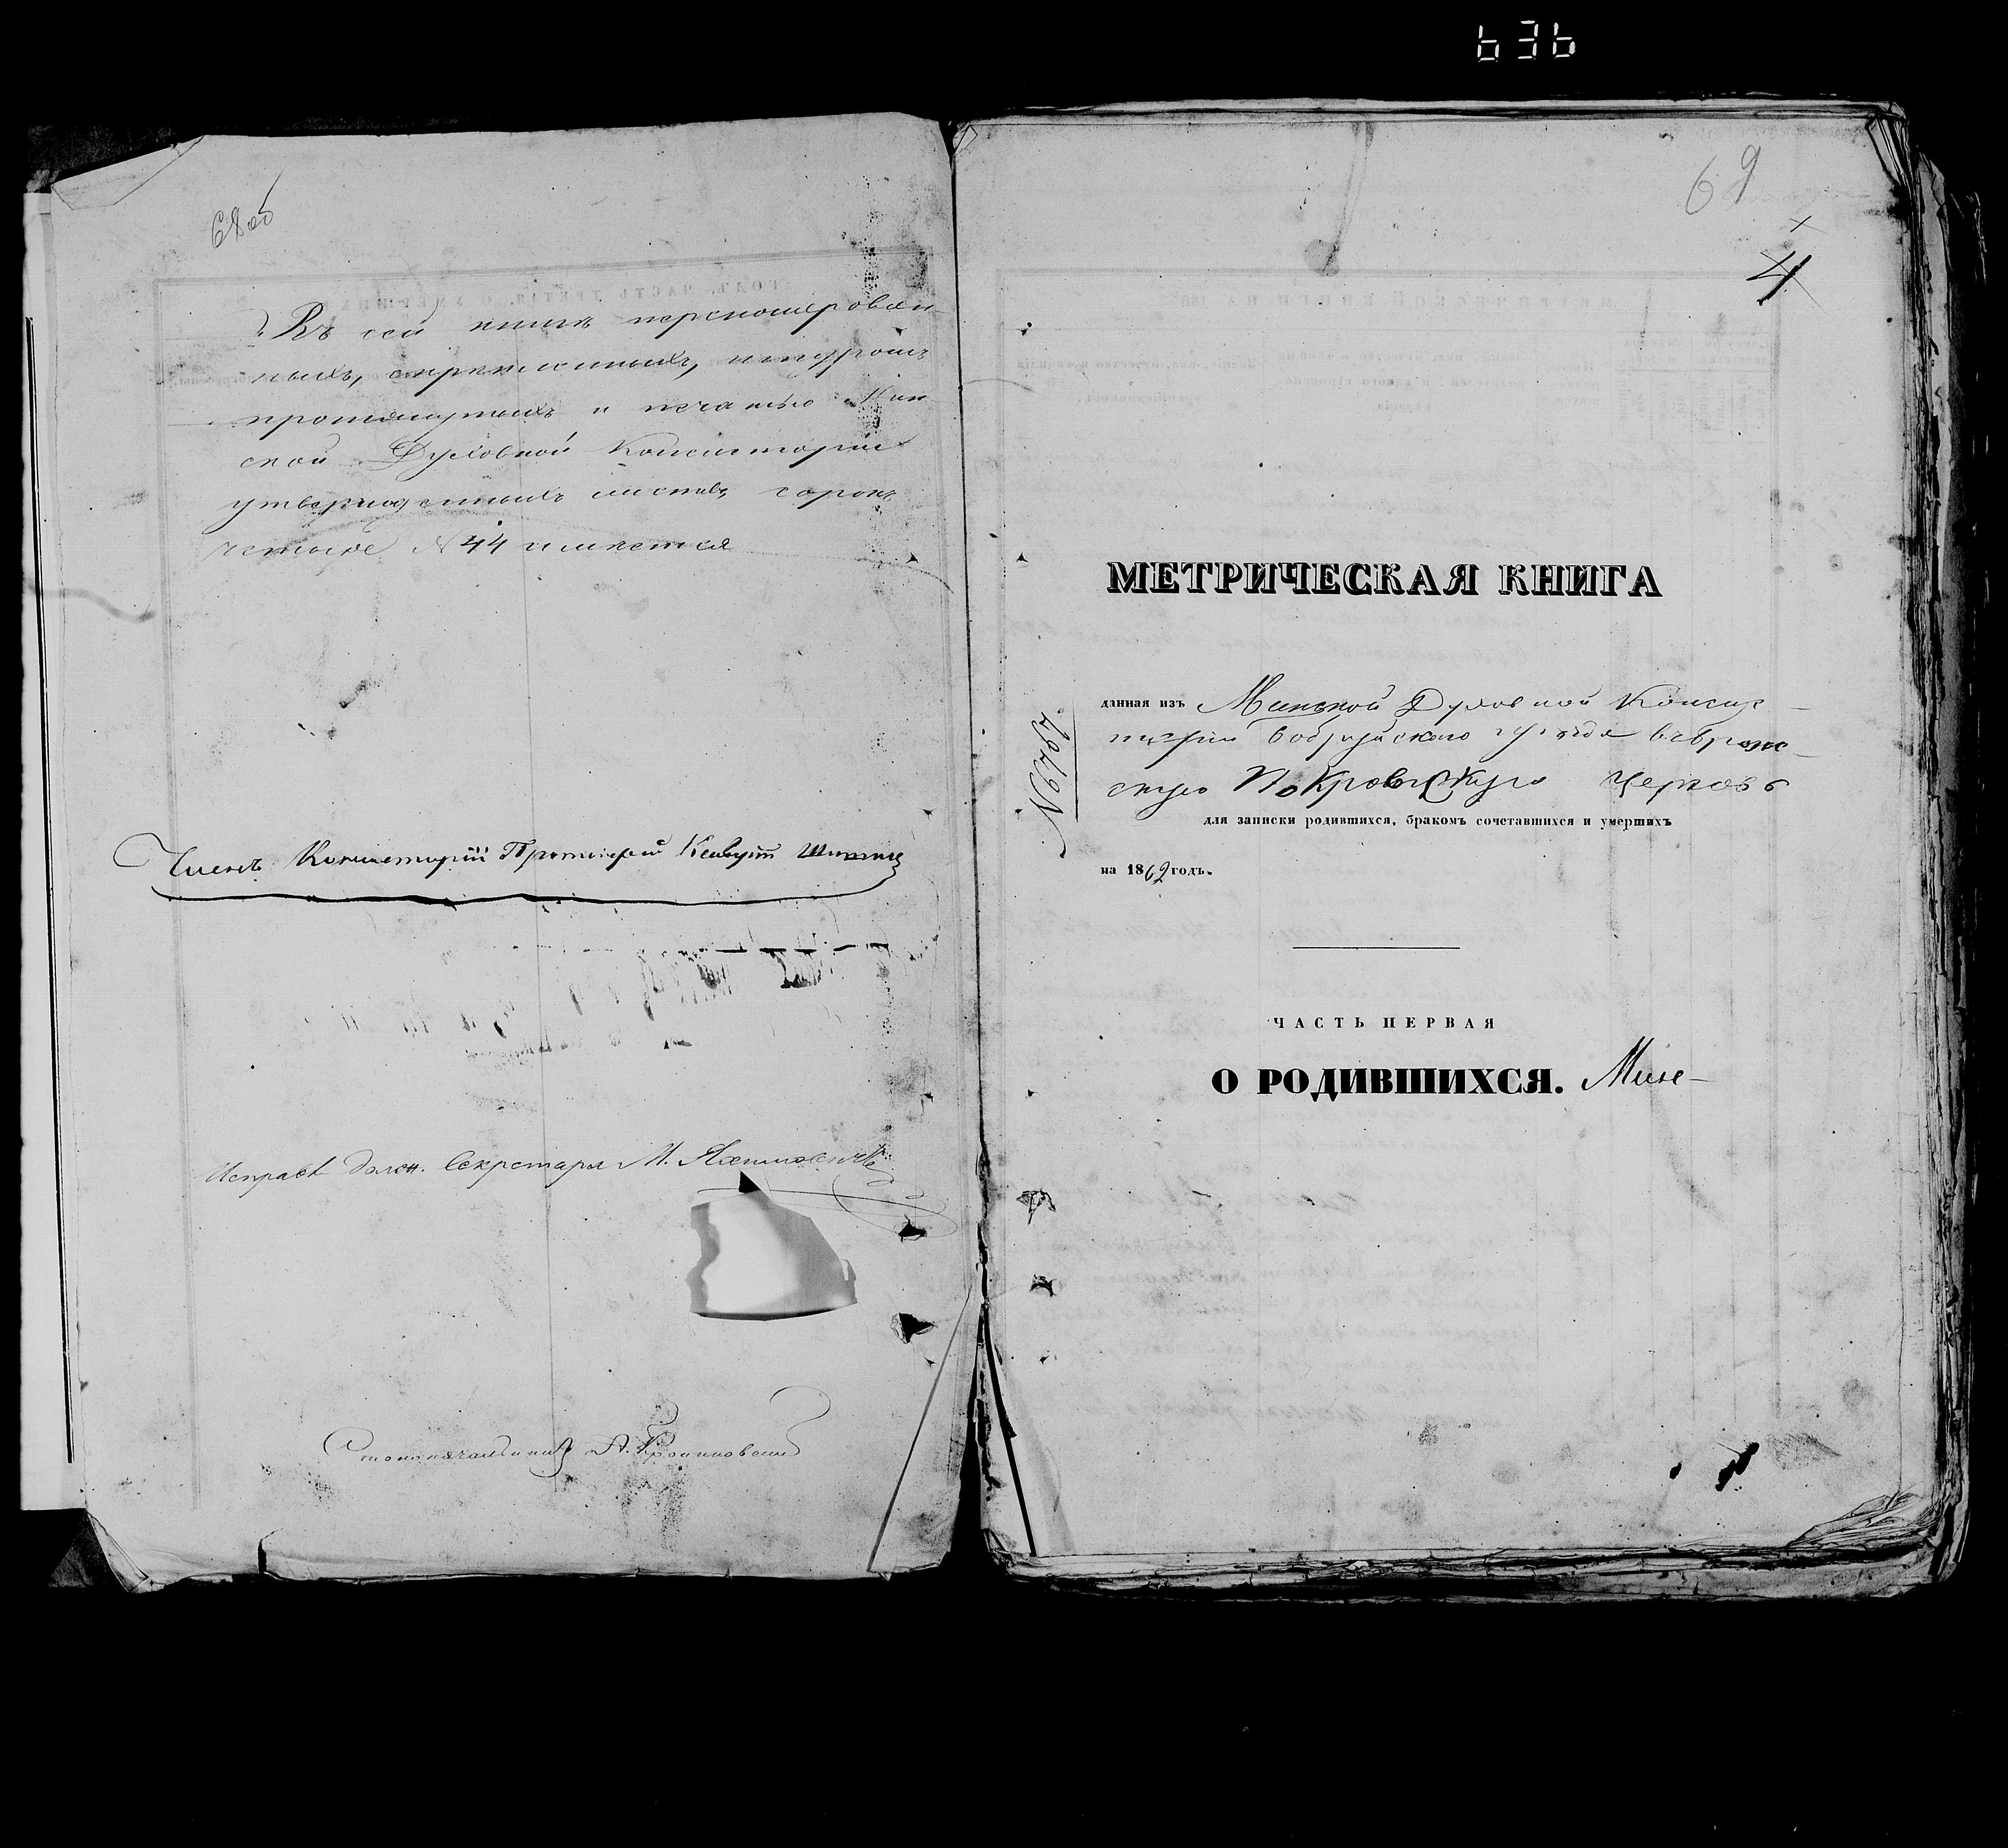 636
68 об
Въ сей книгѣ перенумерован-
ныхъ, скрѣпленныхъ, шнуромъ
протянутыхъ и печатью Мин-
ской Духовной Консисторіи
утвержденныхъ листовъ сорокъ
четыре № 44 имѣется
Членъ Консисторіи Протоіерей
Исправ. Должн. Секретаря М.
Столоначальникъ А.
69
4
МЕТРИЧЕСКАЯ КНИГА
данная изъ Минской Духовной Консис-
торіи Бобруйскаго уѣзда въ
скую Покровскую Церковь
для записки родившихся, бракомъ сочетавшихся и умершихъ
на 1869 годъ.
ЧАСТЬ ПЕРВАЯ
О РОДИВШИХСЯ.